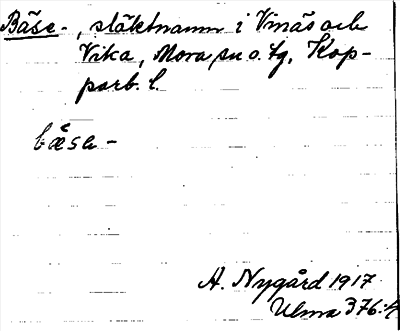 Bäse-, släktnamn i Vinäs och
Vika, Mora sn o. tg, Kop-
parb. l.
bǽsa-
A. Nygård 1917
Ulma 376:4